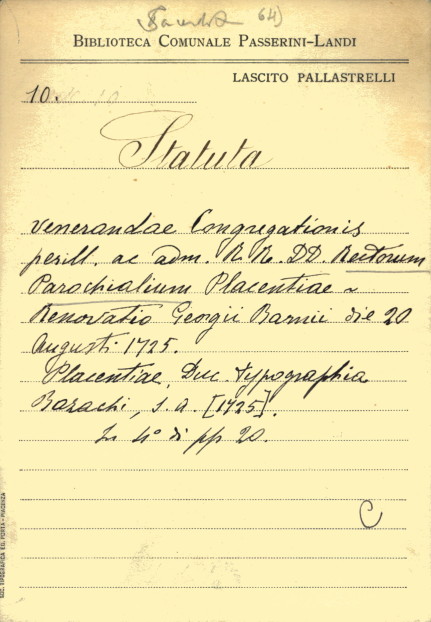 64)
BIBLIOTECA COMUNALE PASSERINI-LANDI
LASCITO PALLASTRELLI
10.
Statuta
venerandae Congregationis
perill. ac adm. R R. DD. Rectorum
Parochialium Placentiae ~
Renovatio Georgii Barnii die 20
Augusti 1725.
Placentiae, Duc. Typographia
Bazachi, s. a. [1725].
In 4° di pp 20.
C
SOC. TIPOGRAFICA ED. PORTA - PIACENZA